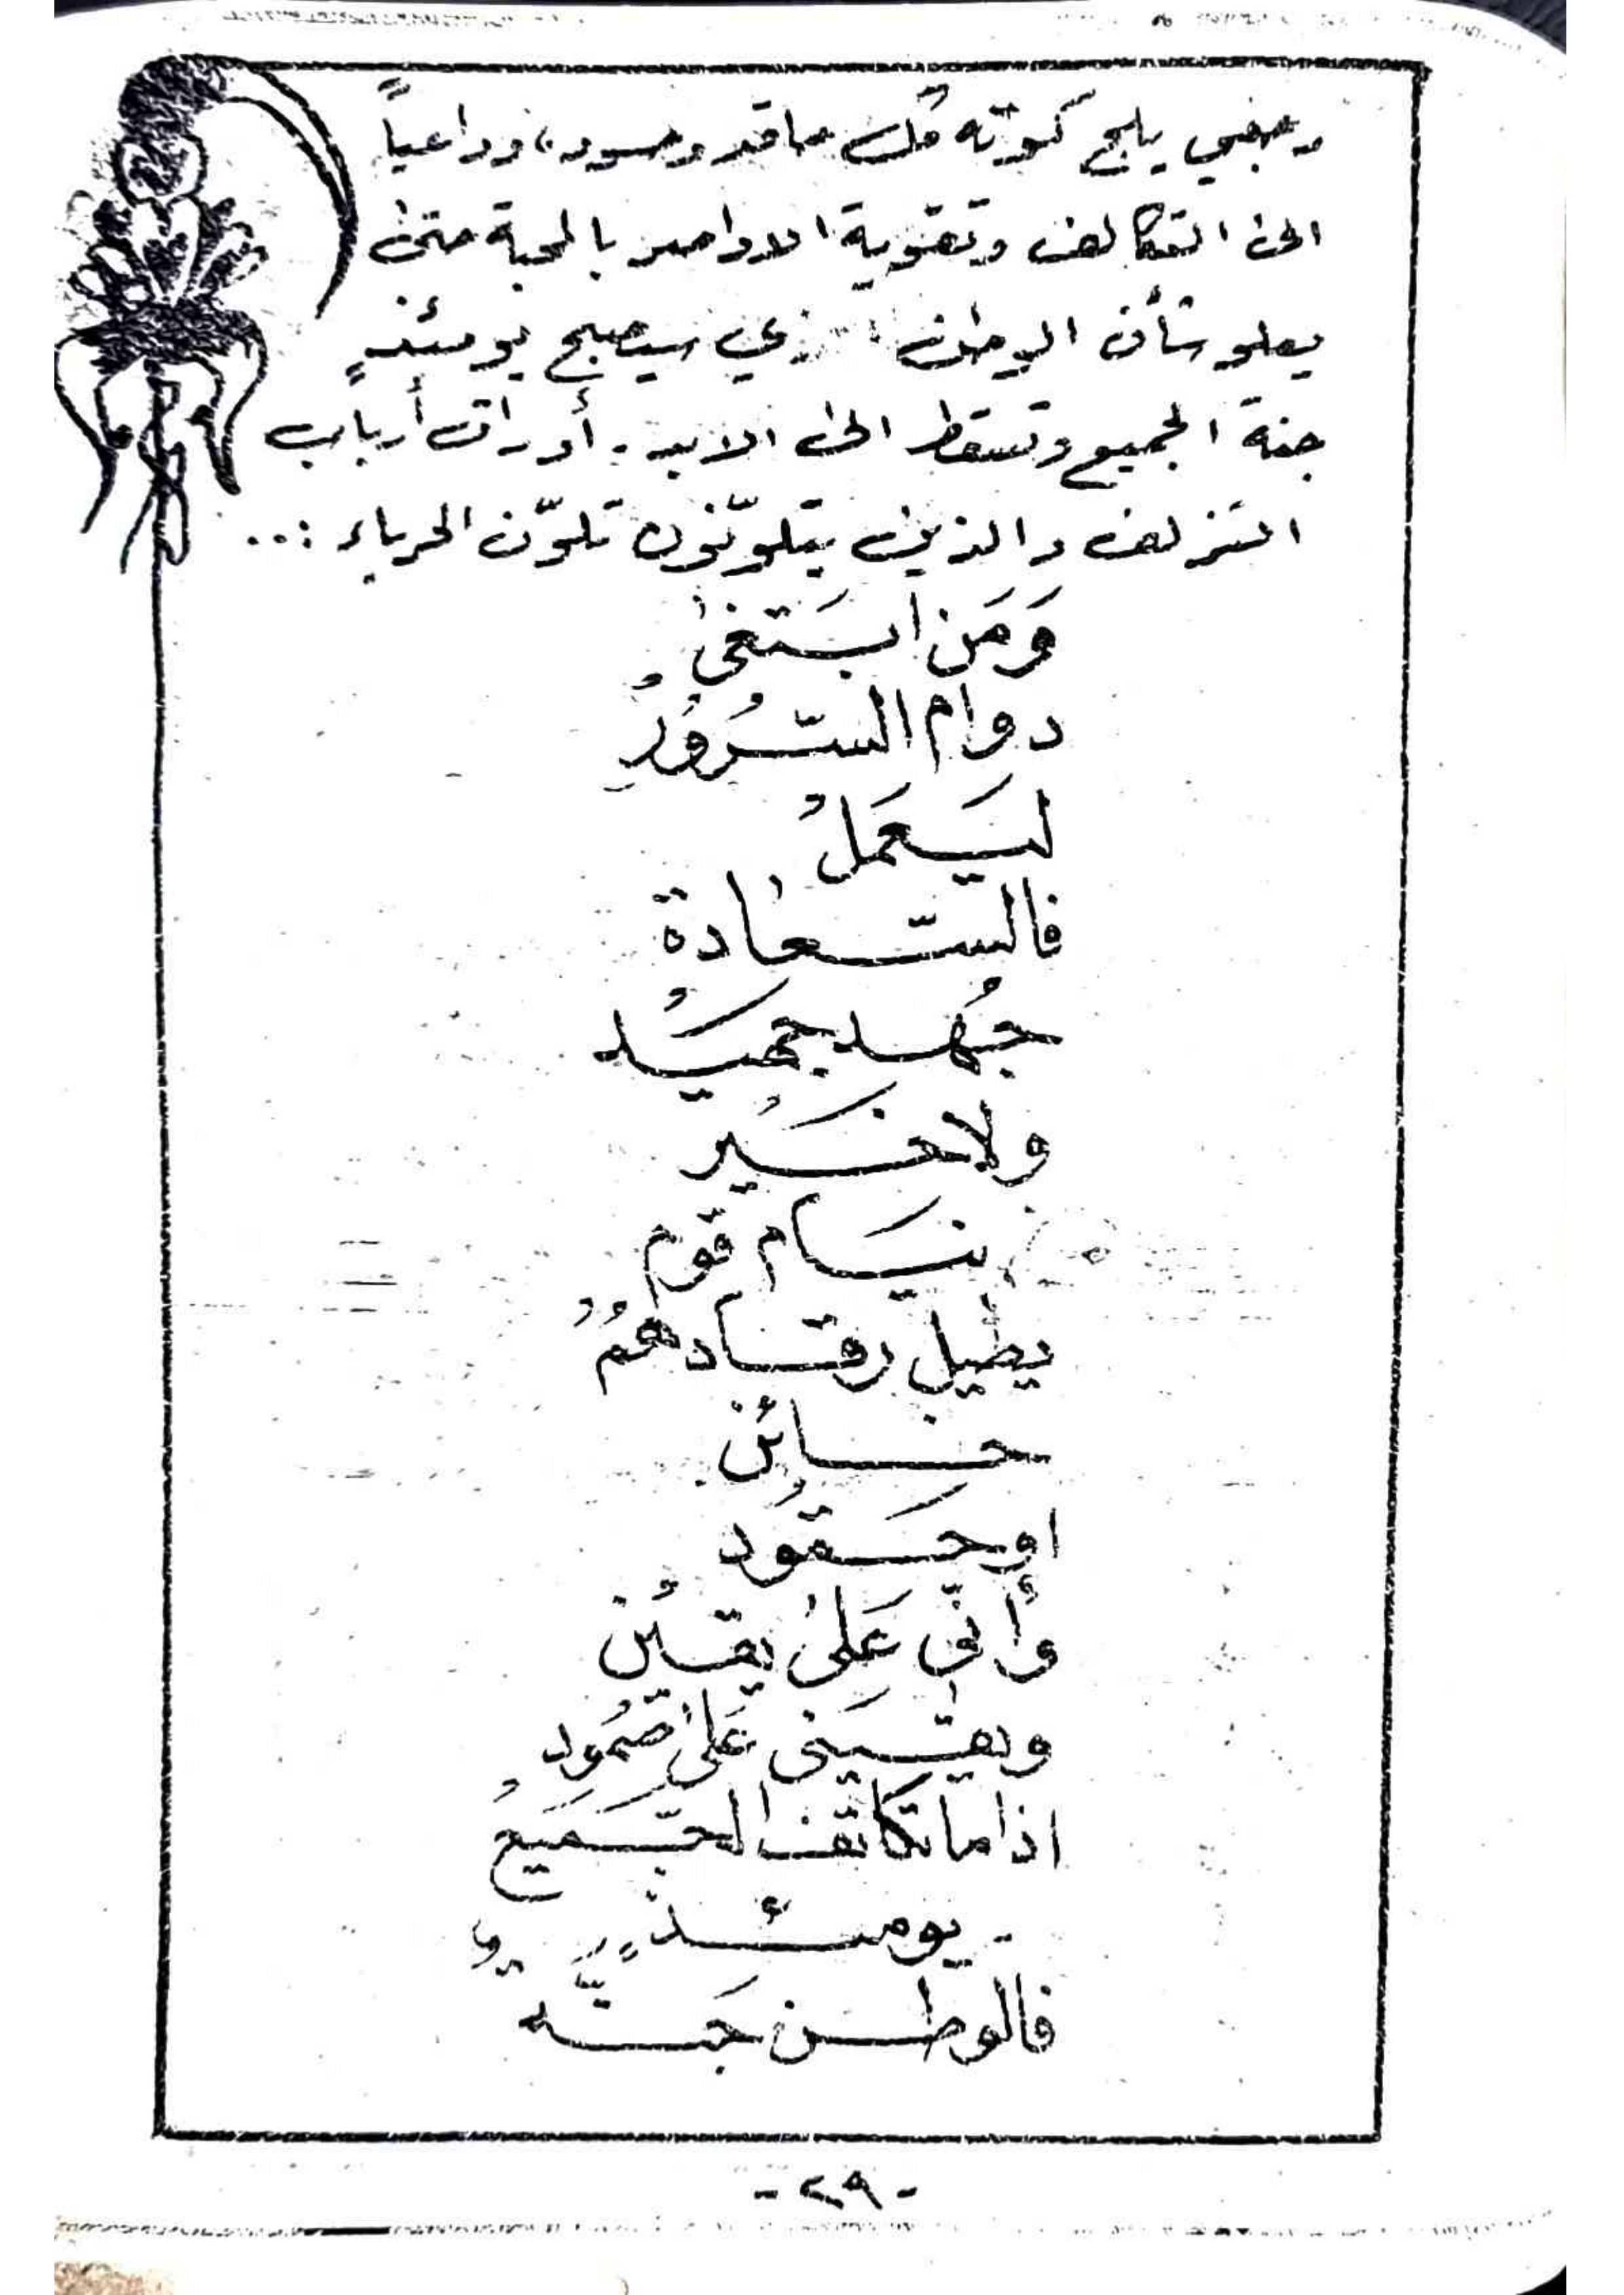 يلج كوته كل حاقد وحسود، وداعياً
الى التكاتف وتقوية الاواصر بالمحبة حتى
يعلو شأن الوطن الذي سيصبح يومئذٍ
جنة الجميع وتسقط الى الابد. أوراق أرباب
التزلف والذين يتلوّنون تلوّن الحرباء :..
وَمَن ابتَغى
دوام السّرُورُ
ليَعمَلُ
فالسّعادة
جُهد جميَدُ
ولا خَيرُ
ينَام قوم
يطيل رقادهُمُ
خائن
او حَقُود
وأنّي عَلىٰ يقين
ويقيَني عَلى صُمُود
اذا ما تكاتف الجَميَعُ
يومئذٍ
فالوطن جَنّه
-٢٩-